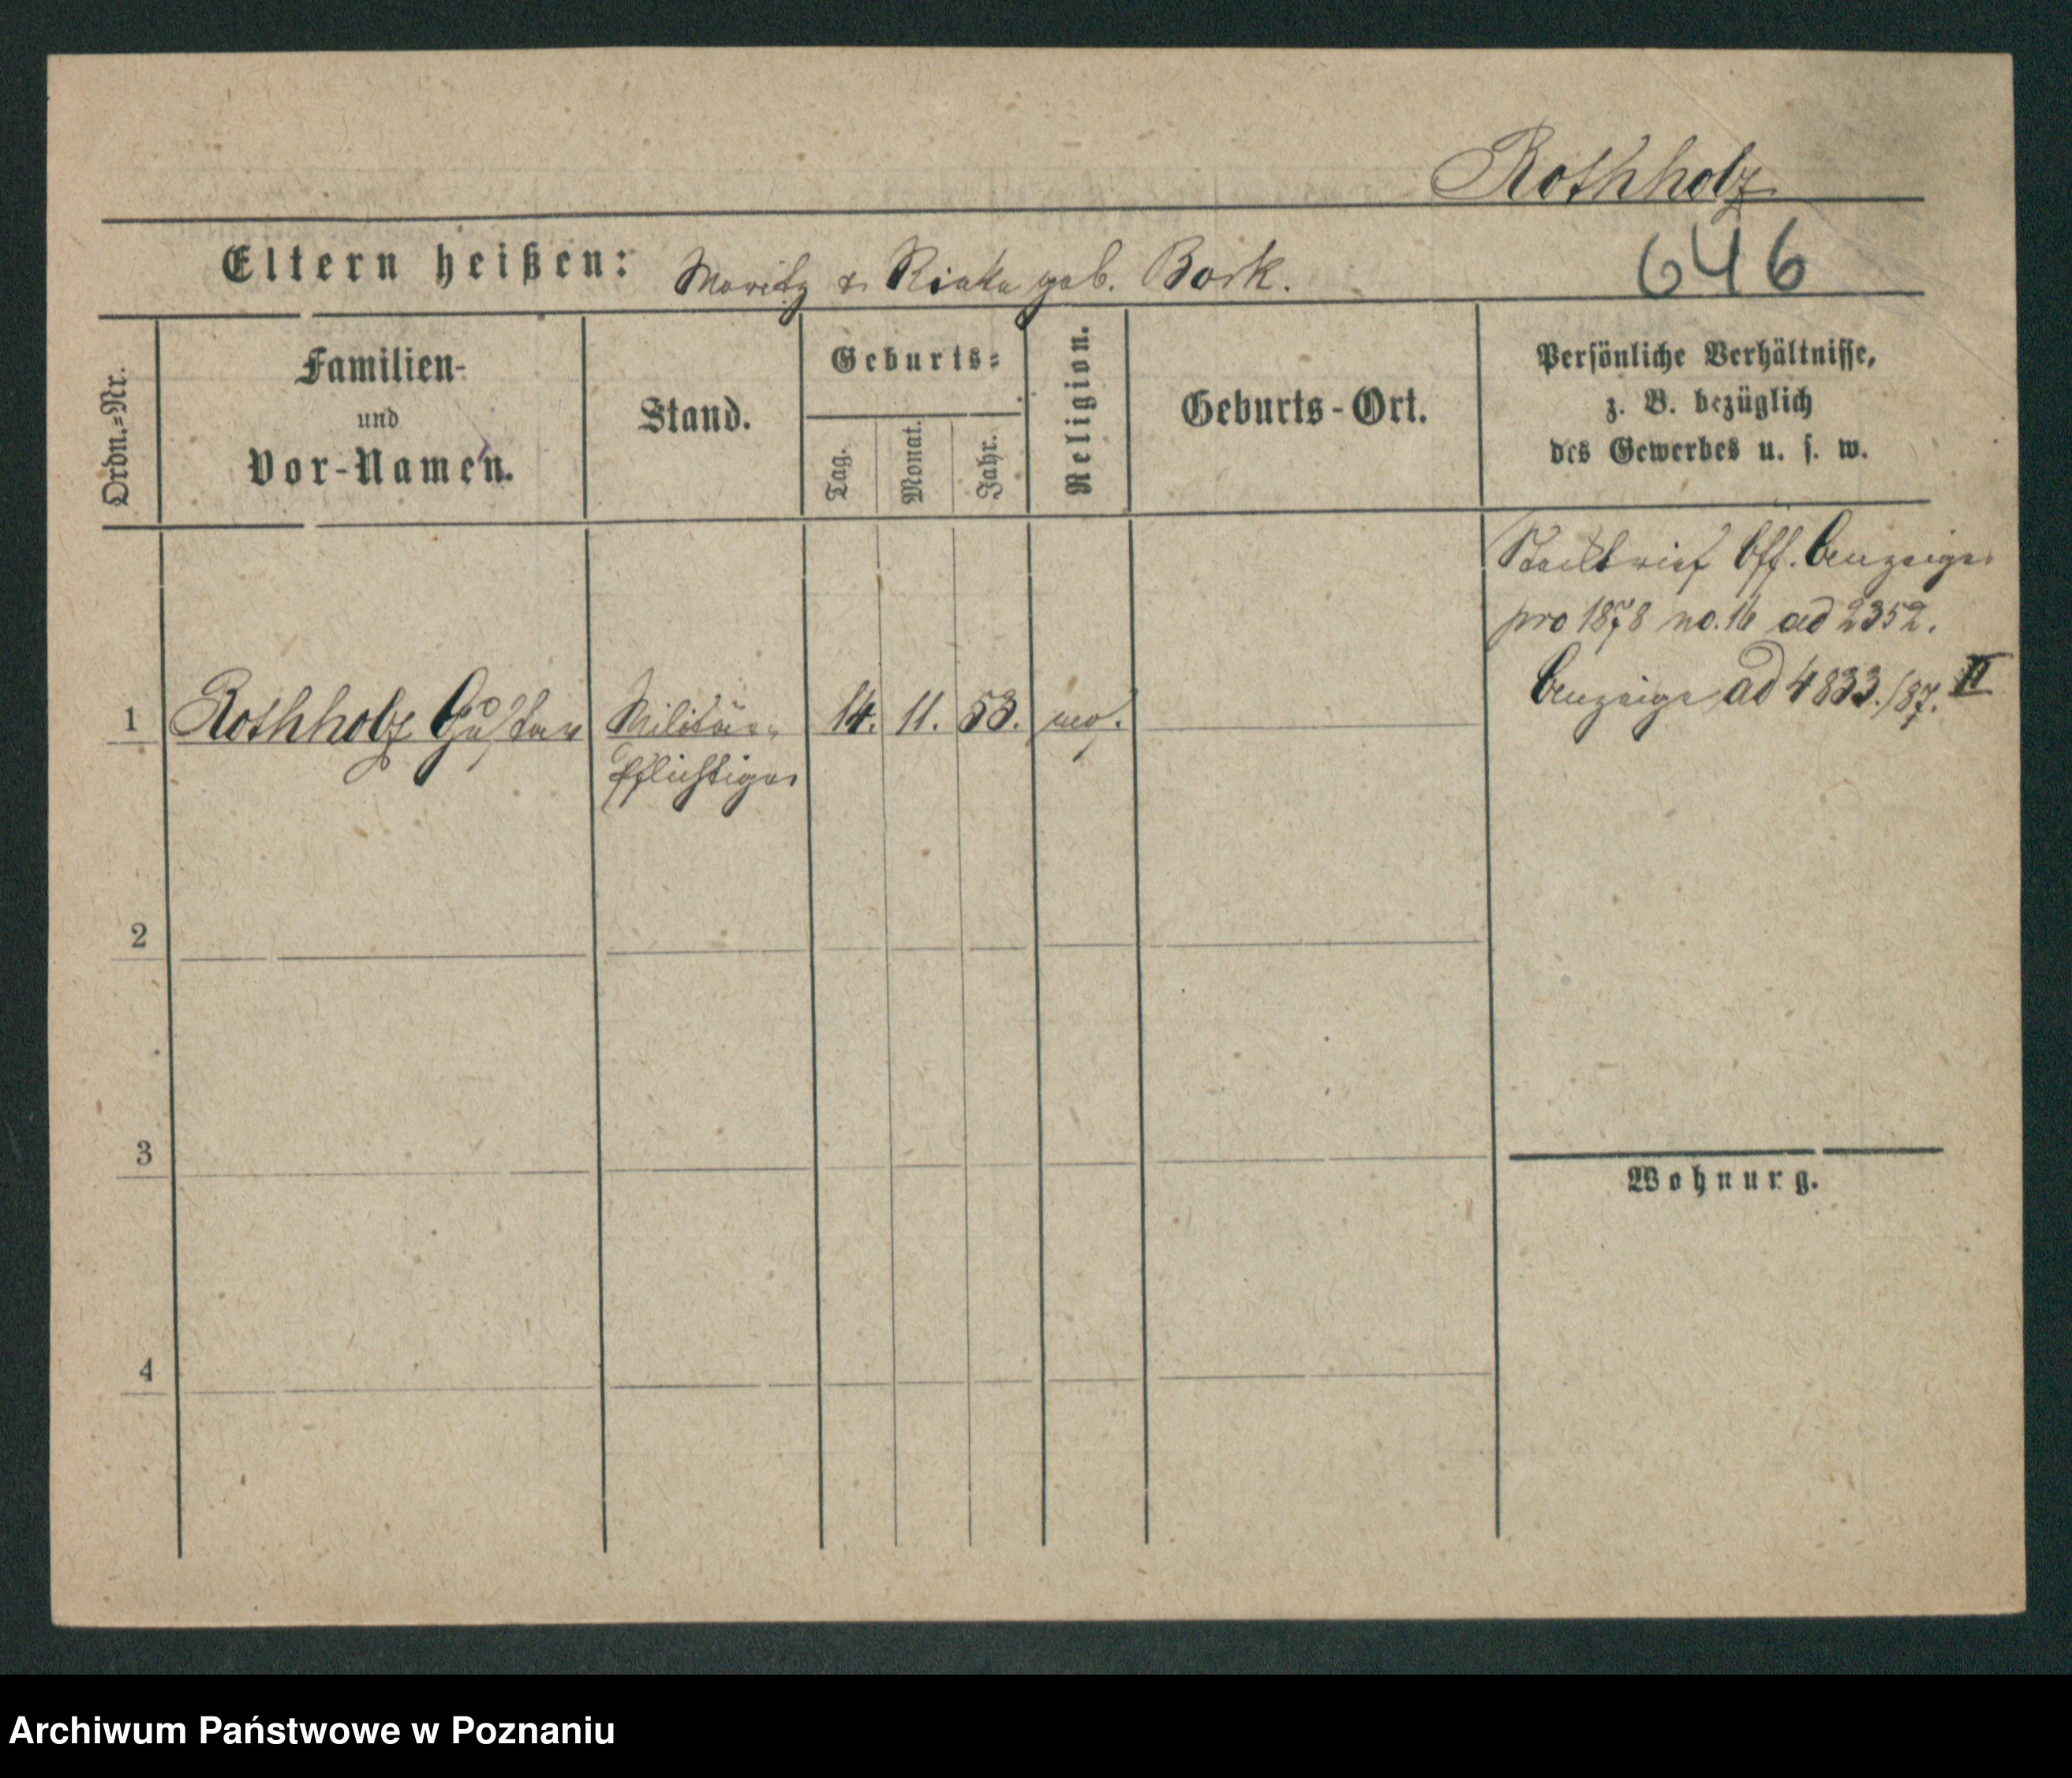 Rothholz
Eltern heißen: Moritz & Rieke geb. Bork.
646
Ordn.=Nr.
Familien-
und
Vor-Namen.
Stand.
Geburts=
Tag.
Monat.
Jahr.
Religion.
Geburts-Ort.
Persönliche Verhältnisse,
z. B. bezüglich
des Gewerbes u. s. w.
Steckbrief Öff. Anzeiger
pro 1878 no. 16 ad 2352.
Anzeige ad 4833./87. II
1 Rothholz Gustav Militär- 14. 11. 53. mos.
Pflichtiger
2
3
Wohnurg.
4
Archiwum Państwowe w Poznaniu